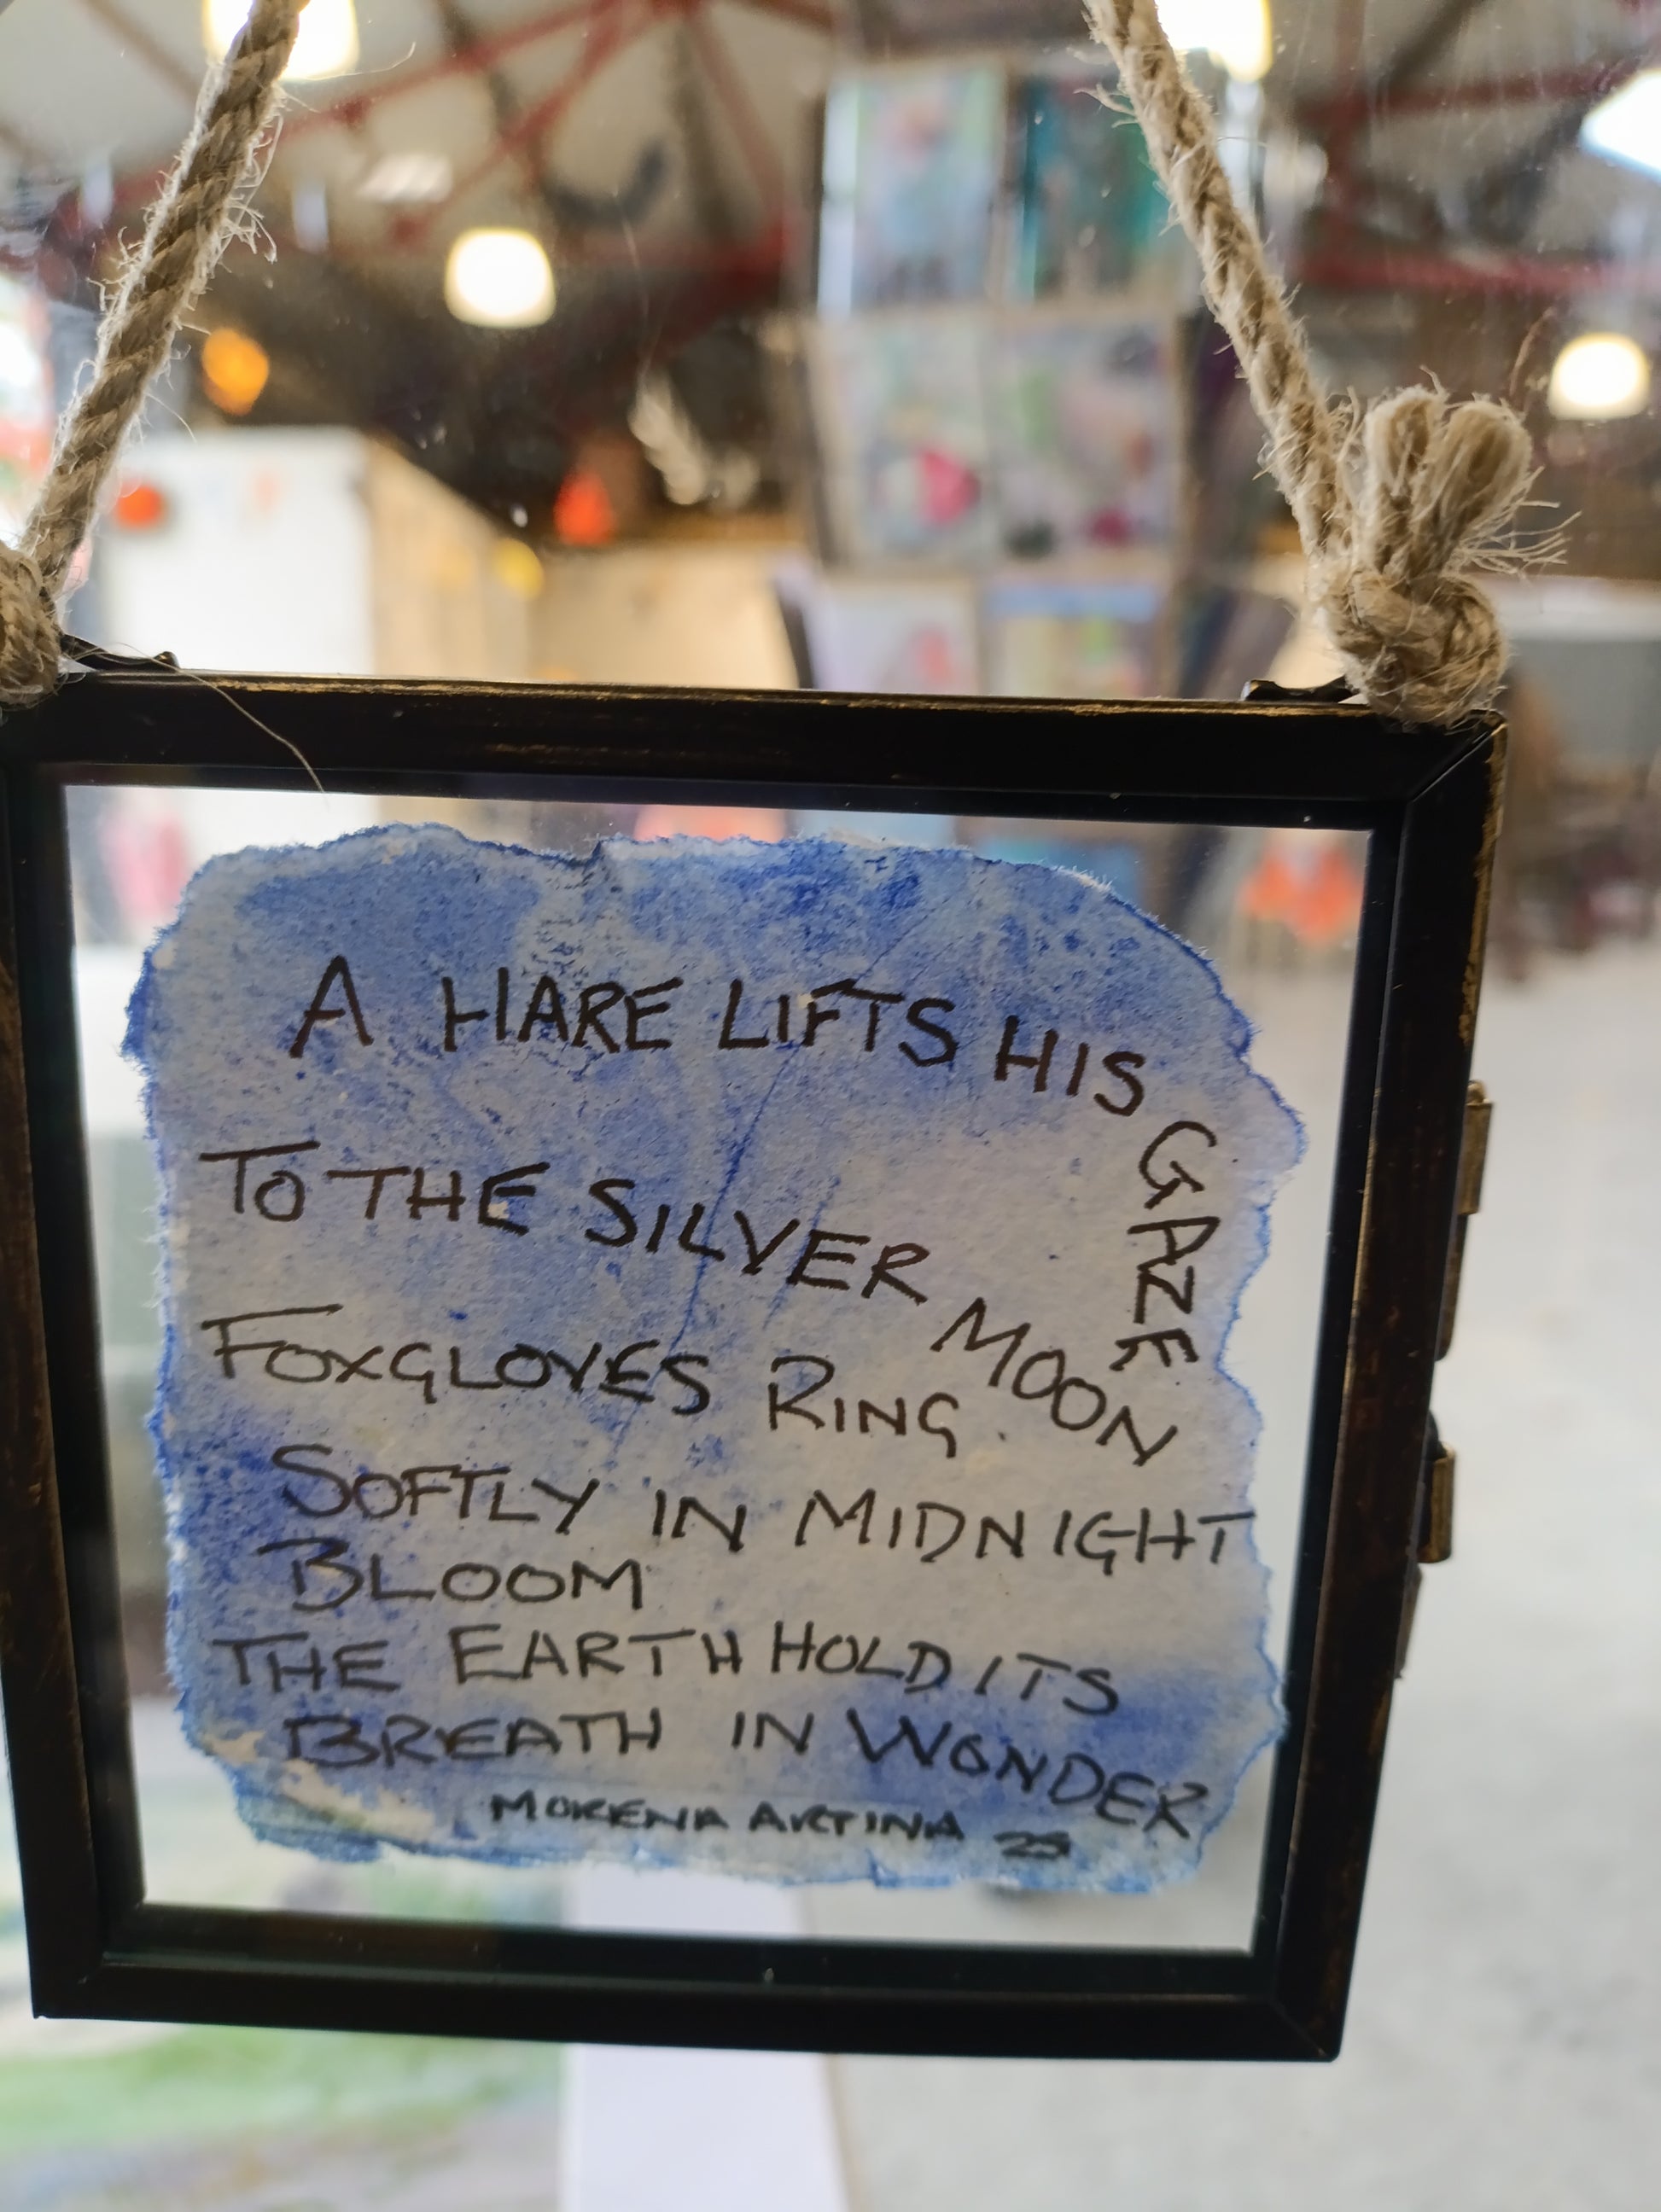 A HARE LIFTS HIS GAZE
TO THE SILVER MOON
FOXGLOVES RING.
SOFTLY IN MIDNIGHT
BLOOM
THE EARTH HOLD ITS
BREATH IN WONDER
MORENA ARTINA 25